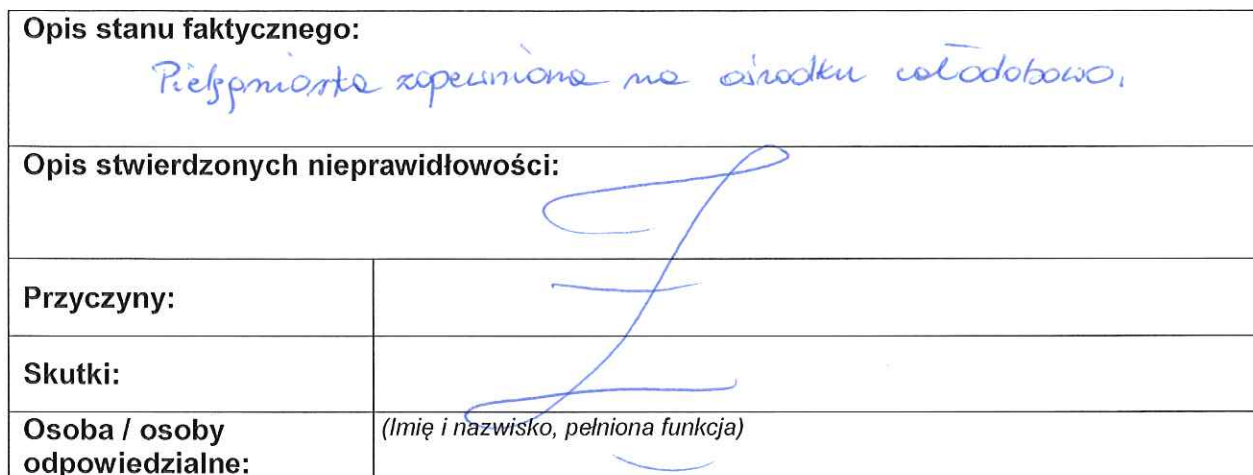 Opis stanu faktycznego:
Pielęgniarka zapewniona na ośrodku całodobowo.
Opis stwierdzonych nieprawidłowości:
Przyczyny:
Skutki:
Osoba / osoby odpowiedzialne:
(Imię i nazwisko, pełniona funkcja)